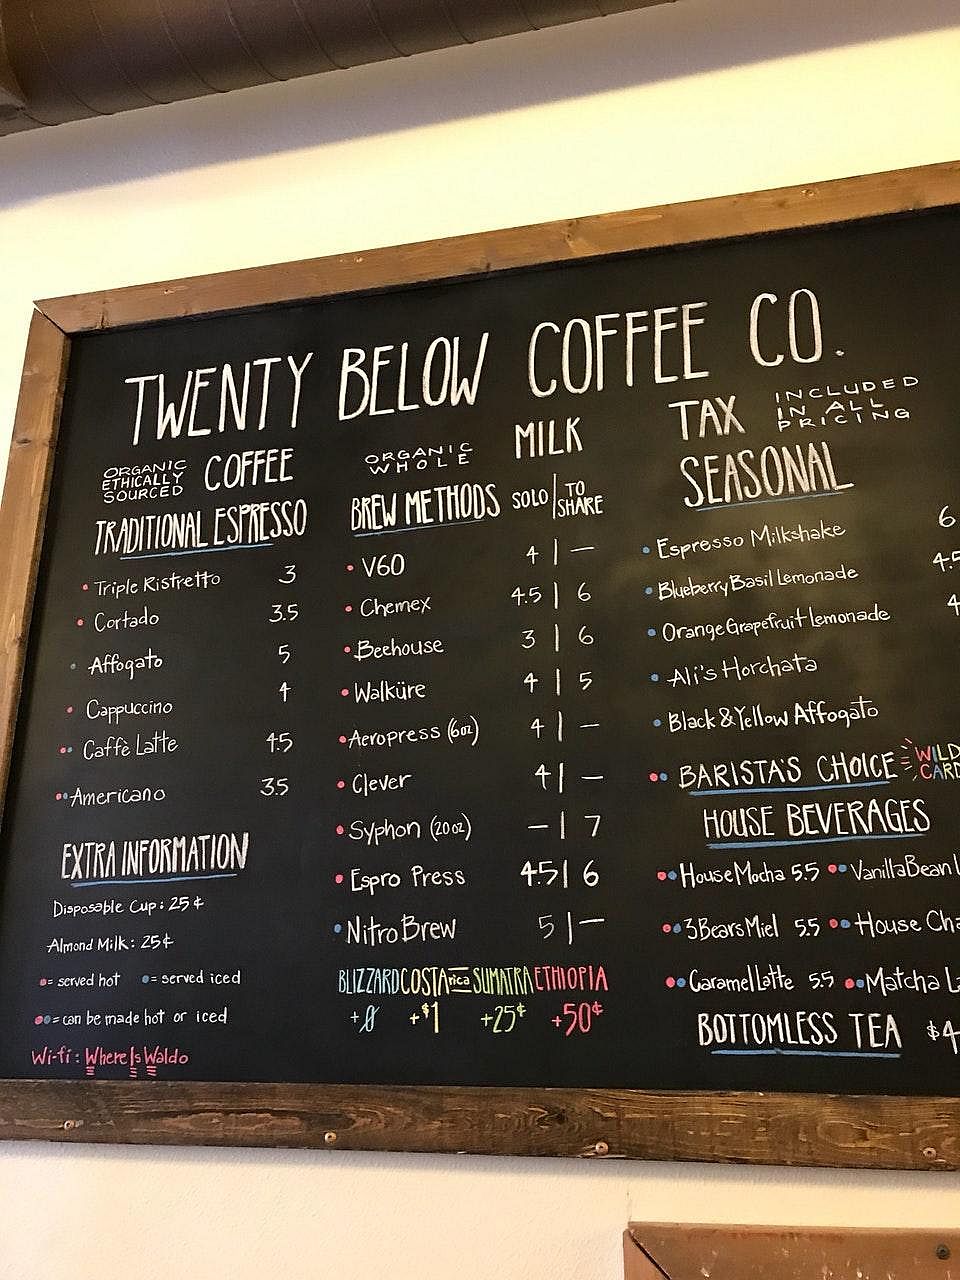 TWENTY BELOW COFFEE CO.
ORGANIC ETHICALLY SOURCED COFFEE
TRADITIONAL ESPRESSO
Triple Ristretto 3
Cortado 3.5
Affogato 5
Cappuccino 4
Caffè Latte 4.5
Americano 3.5
EXTRA INFORMATION
Disposable Cup: 25¢
Almond Milk: 25¢
= served hot = served iced
= can be made hot or iced
Wi-fi: WhereIsWaldo
ORGANIC WHOLE MILK
BREW METHODS SOLO | TO SHARE
V60 4 | —
Chemex 4.5 | 6
Beehouse 3 | 6
Walküre 4 | 5
Aeropress (6oz) 4 | —
Clever 4 | —
Syphon (20oz) — | 7
Espro Press 4.5 | 6
Nitro Brew 5 | —
BLIZZARD COSTA rica SUMATRA ETHIOPIA
+0 +$1 +25¢ +50¢
TAX INCLUDED IN ALL PRICING
SEASONAL
Espresso Milkshake 6
Blueberry Basil Lemonade 4.5
Orange Grapefruit Lemonade 4
Ali's Horchata
Black & Yellow Affogato
BARISTA'S CHOICE WILD CARD
HOUSE BEVERAGES
House Mocha 5.5 Vanilla Bean
3 Bears Miel 5.5 House
Caramel Latte 5.5 Matcha
BOTTOMLESS TEA $4